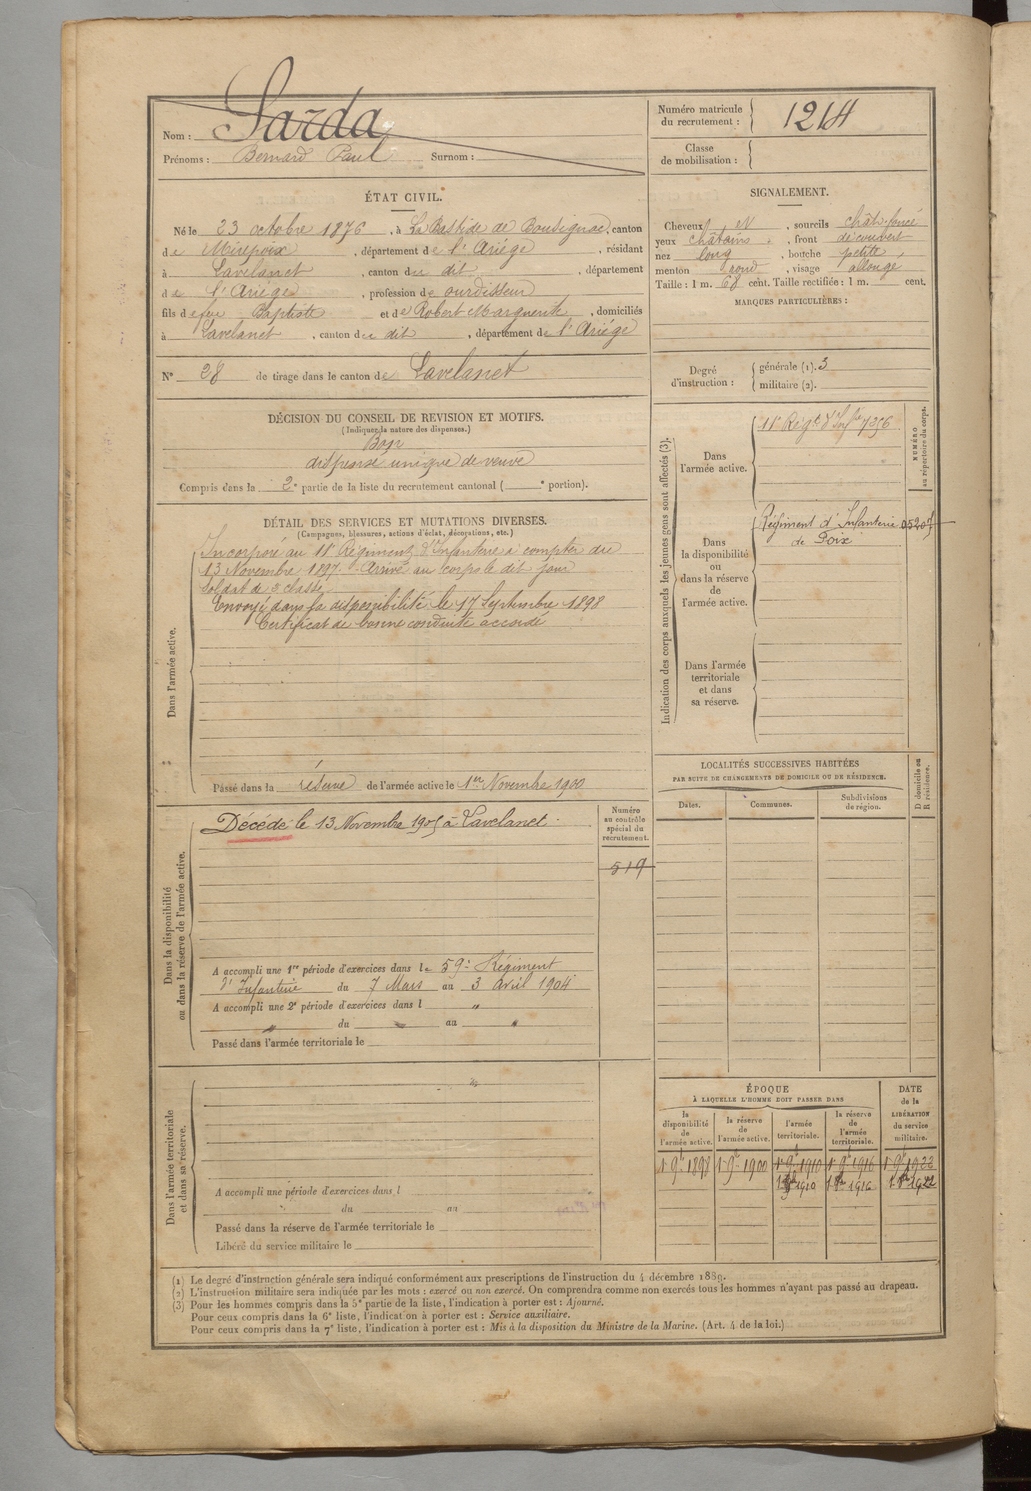 Nom : Sarda
Prénoms : Bernard Paul Surnom :
Numéro matricule du recrutement : 1214
Classe de mobilisation :
ÉTAT CIVIL.
Né le 23 octobre 1876, à La Bastide de Bousignac, canton
de Mirepoix, département de l'Ariége, résidant
à Lavelanet, canton du dit, département
de l'Ariége, profession de ourdisseur
fils de feu Baptiste et de Robert Marguerite, domiciliés
à Lavelanet, canton du dit, département de l'Ariége
N° 28 de tirage dans le canton de Lavelanet
SIGNALEMENT.
Cheveux N, sourcils chât-foncé
yeux châtains, front découvert
nez long, bouche petite
menton rond, visage allongé
Taille : 1 m. 68 cent. Taille rectifiée : 1 m. cent.
MARQUES PARTICULIÈRES :
Degré d'instruction :
générale (1). 3
militaire (2).
DÉCISION DU CONSEIL DE REVISION ET MOTIFS.
(Indiquer la nature des dispenses.)
Bon
dispensé unique de veuve
Compris dans la 2e partie de la liste du recrutement cantonal ( e portion).
DÉTAIL DES SERVICES ET MUTATIONS DIVERSES.
(Campagnes, blessures, actions d'éclat, décorations, etc.)
Dans l'armée active.
Incorporé au 11e Régiment d'Infanterie à compter du
13 Novembre 1897. Arrivé au corps le dit jour
soldat de 2e classe.
Envoyé dans la disponibilité le 17 Septembre 1898
Certificat de bonne conduite accordé
Passé dans la réserve de l'armée active le 1er Novembre 1900
Indication des corps auxquels les jeunes gens sont affectés (3).
NUMÉRO au répertoire du corps.
Dans l'armée active.
11e Régt d'Infrie 7356
Dans la disponibilité ou dans la réserve de l'armée active.
Régiment d'Infanterie
de Foix
Dans l'armée territoriale et dans sa réserve.
LOCALITÉS SUCCESSIVES HABITÉES
PAR SUITE DE CHANGEMENTS DE DOMICILE OU DE RÉSIDENCE.
Dates.
Communes.
Subdivisions de région.
D domicile ou R résidence.
Dans la disponibilité ou dans la réserve de l'armée active.
Décédé le 13 Novembre 1905 à Lavelanet.
Numéro au contrôle spécial du recrutement.
519
A accompli une 1re période d'exercices dans le 59e Régiment
d'Infanterie du 7 Mars au 3 Avril 1904
A accompli une 2e période d'exercices dans l "
" du " au "
Passé dans l'armée territoriale le
Dans l'armée territoriale et dans sa réserve.
A accompli une période d'exercices dans l
du au
Passé dans la réserve de l'armée territoriale le
Libéré du service militaire le
ÉPOQUE
À LAQUELLE L'HOMME DOIT PASSER DANS
la disponibilité de l'armée active.
la réserve de l'armée active.
l'armée territoriale.
la réserve de l'armée territoriale.
DATE de la LIBÉRATION du service militaire.
1er 9bre 1898 1er 9bre 1900 1er 9bre 1910 1er 9bre 1916 1er 9bre 1922
(1) Le degré d'instruction générale sera indiqué conformément aux prescriptions de l'instruction du 4 décembre 1889.
(2) L'instruction militaire sera indiquée par les mots : exercé ou non exercé. On comprendra comme non exercés tous les hommes n'ayant pas passé au drapeau.
(3) Pour les hommes compris dans la 5e partie de la liste, l'indication à porter est : Ajourné.
Pour ceux compris dans la 6e liste, l'indication à porter est : Service auxiliaire.
Pour ceux compris dans la 7e liste, l'indication à porter est : Mis à la disposition du Ministre de la Marine. (Art. 4 de la loi.)